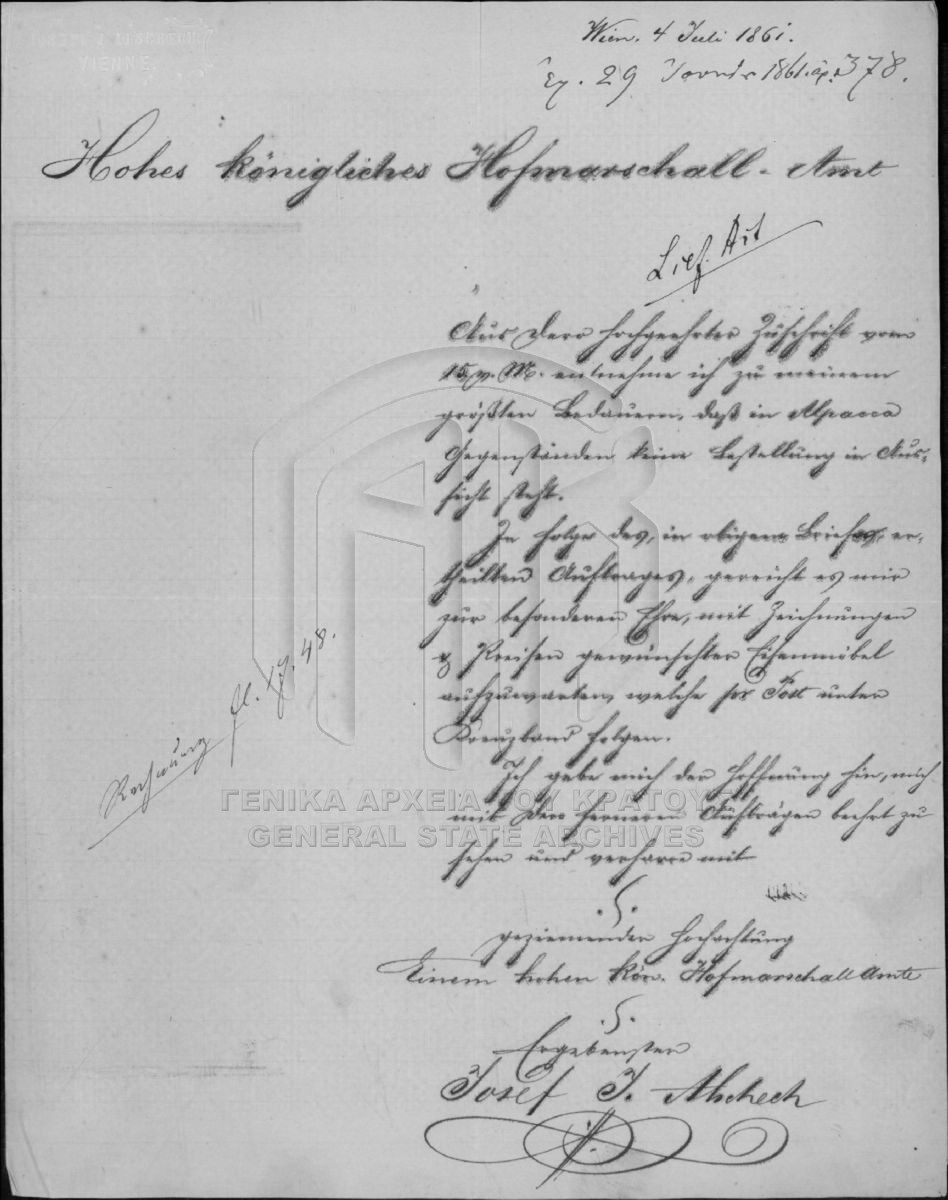 VIENNE
Wien. 4 Juli 1861.
29 1861 378.
Hohes königliches Hofmarschall-Amt
Lief.
Aus Dero hochgeehrter Zuschrift vom
15 v. M. entnehme ich zu meinem
größten Bedauern, daß in Alpacca
Gegenständen keine Bestellung in Aus-
sicht steht.
In Folge des, in obigem Briefe, er-
theilten Auftrages, gereicht es mir
zur besonderen Ehre, mit Zeichnungen
& Preisen gewünschter Eisenmöbel
aufzuwarten, welche per Post unter
Kreuzband folgen.
Ich gebe mich der Hoffnung hin, mich
mit Dero ferneren Aufträgen beehrt zu
sehen und verharre mit
geziemender Hochachtung
Einem hohen kön. Hofmarschall Amte
Ergebenster
Josef J.
Rechnung fl. 48.
ΓΕΝΙΚΑ ΑΡΧΕΙΑ ΤΟΥ ΚΡΑΤΟΥΣ
GENERAL STATE ARCHIVES